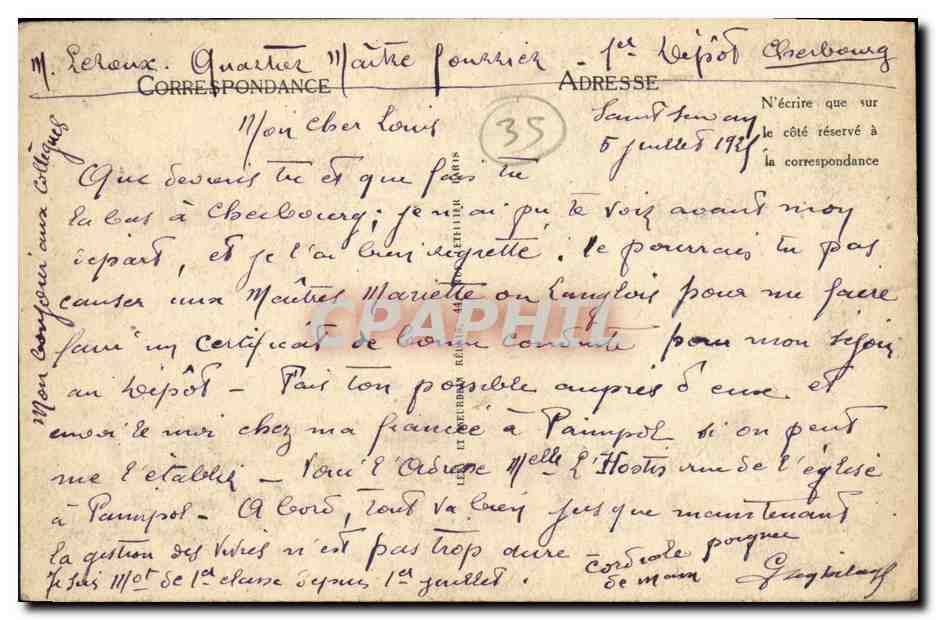 M. Leroux. Quartier Maître fourrier - 1er Dépôt Cherbourg
CORRESPONDANCE
ADRESSE
N'écrire que sur
le côté réservé à
la correspondance
35
Saint Servan
5 juillet 192
Mon cher Louis
Que deviens tu et que fais tu
la bas à Cherbourg; je n'ai pu te voir avant mon
départ, et je l'ai bien regretté. Ne pourrais tu pas
causer aux Maîtres Mariette ou Langlois pour me faire
faire un certificat de bonne conduite pour mon séjour
au Dépôt - Fais ton possible auprès d'eux et
envoi le moi chez ma fiancée à Paimpol si on peut
me l'établir - Voici l'Adresse Melle L'Hostis rue de l'église
à Paimpol - A bord, tout va bien jusque maintenant
la gestion des vivres n'est pas trop dure -
Je suis Mot de 1ère classe depuis 1er juillet.
cordiale poignée
de main
Mon bonjour aux collègues
LEVY ET NEURDEIN RÉUNIS, 44, RUE LETELLIER, PARIS
CPAPHIL